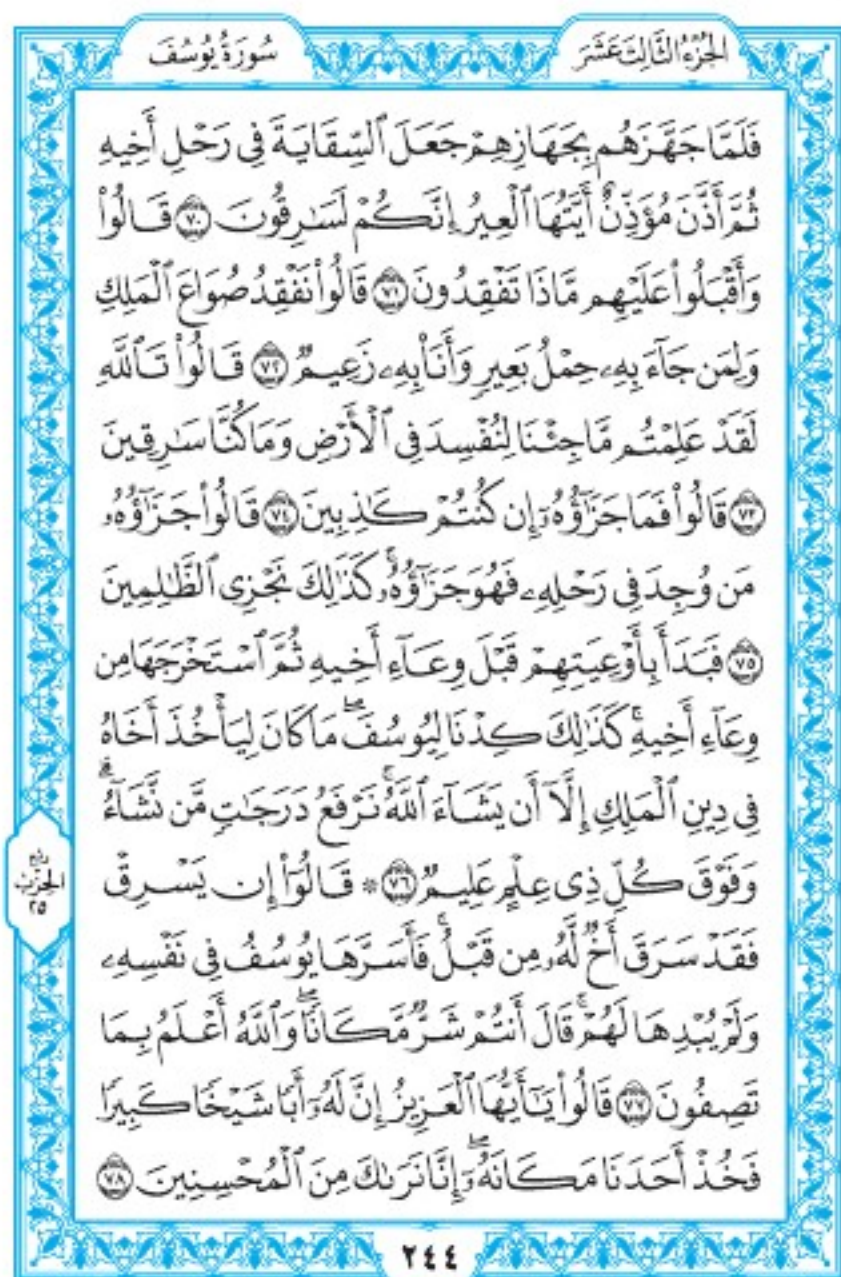 الجُزْءُ الثَّالِثَ عَشَرَ
سُورَةُ يُوسُفَ
فَلَمَّا جَهَّزَهُم بِجَهَازِهِمْ جَعَلَ ٱلسِّقَايَةَ فِى رَحْلِ أَخِيهِ
ثُمَّ أَذَّنَ مُؤَذِّنٌ أَيَّتُهَا ٱلْعِيرُ إِنَّكُمْ لَسَـٰرِقُونَ ٧٠ قَالُوا۟
وَأَقْبَلُوا۟ عَلَيْهِم مَّاذَا تَفْقِدُونَ ٧١ قَالُوا۟ نَفْقِدُ صُوَاعَ ٱلْمَلِكِ
وَلِمَن جَآءَ بِهِۦ حِمْلُ بَعِيرٍ وَأَنَا۠ بِهِۦ زَعِيمٌ ٧٢ قَالُوا۟ تَٱللَّهِ
لَقَدْ عَلِمْتُم مَّا جِئْنَا لِنُفْسِدَ فِى ٱلْأَرْضِ وَمَا كُنَّا سَـٰرِقِينَ
٧٣ قَالُوا۟ فَمَا جَزَٰٓؤُهُۥٓ إِن كُنتُمْ كَـٰذِبِينَ ٧٤ قَالُوا۟ جَزَٰٓؤُهُۥ
مَن وُجِدَ فِى رَحْلِهِۦ فَهُوَ جَزَٰٓؤُهُۥ ۚ كَذَٰلِكَ نَجْزِى ٱلظَّـٰلِمِينَ
٧٥ فَبَدَأَ بِأَوْعِيَتِهِمْ قَبْلَ وِعَآءِ أَخِيهِ ثُمَّ ٱسْتَخْرَجَهَا مِن
وِعَآءِ أَخِيهِ ۚ كَذَٰلِكَ كِدْنَا لِيُوسُفَ ۖ مَا كَانَ لِيَأْخُذَ أَخَاهُ
فِى دِينِ ٱلْمَلِكِ إِلَّآ أَن يَشَآءَ ٱللَّهُ ۚ نَرْفَعُ دَرَجَـٰتٍ مَّن نَّشَآءُ ۗ
وَفَوْقَ كُلِّ ذِى عِلْمٍ عَلِيمٌ ٧٦ ۞ قَالُوٓا۟ إِن يَسْرِقْ
فَقَدْ سَرَقَ أَخٌ لَّهُۥ مِن قَبْلُ ۚ فَأَسَرَّهَا يُوسُفُ فِى نَفْسِهِۦ
وَلَمْ يُبْدِهَا لَهُمْ ۚ قَالَ أَنتُمْ شَرٌّ مَّكَانًا ۖ وَٱللَّهُ أَعْلَمُ بِمَا
تَصِفُونَ ٧٧ قَالُوا۟ يَـٰٓأَيُّهَا ٱلْعَزِيزُ إِنَّ لَهُۥٓ أَبًا شَيْخًا كَبِيرًا
فَخُذْ أَحَدَنَا مَكَانَهُۥٓ ۖ إِنَّا نَرَىٰكَ مِنَ ٱلْمُحْسِنِينَ ٧٨
ربع
الحزب
٢٥
٢٤٤